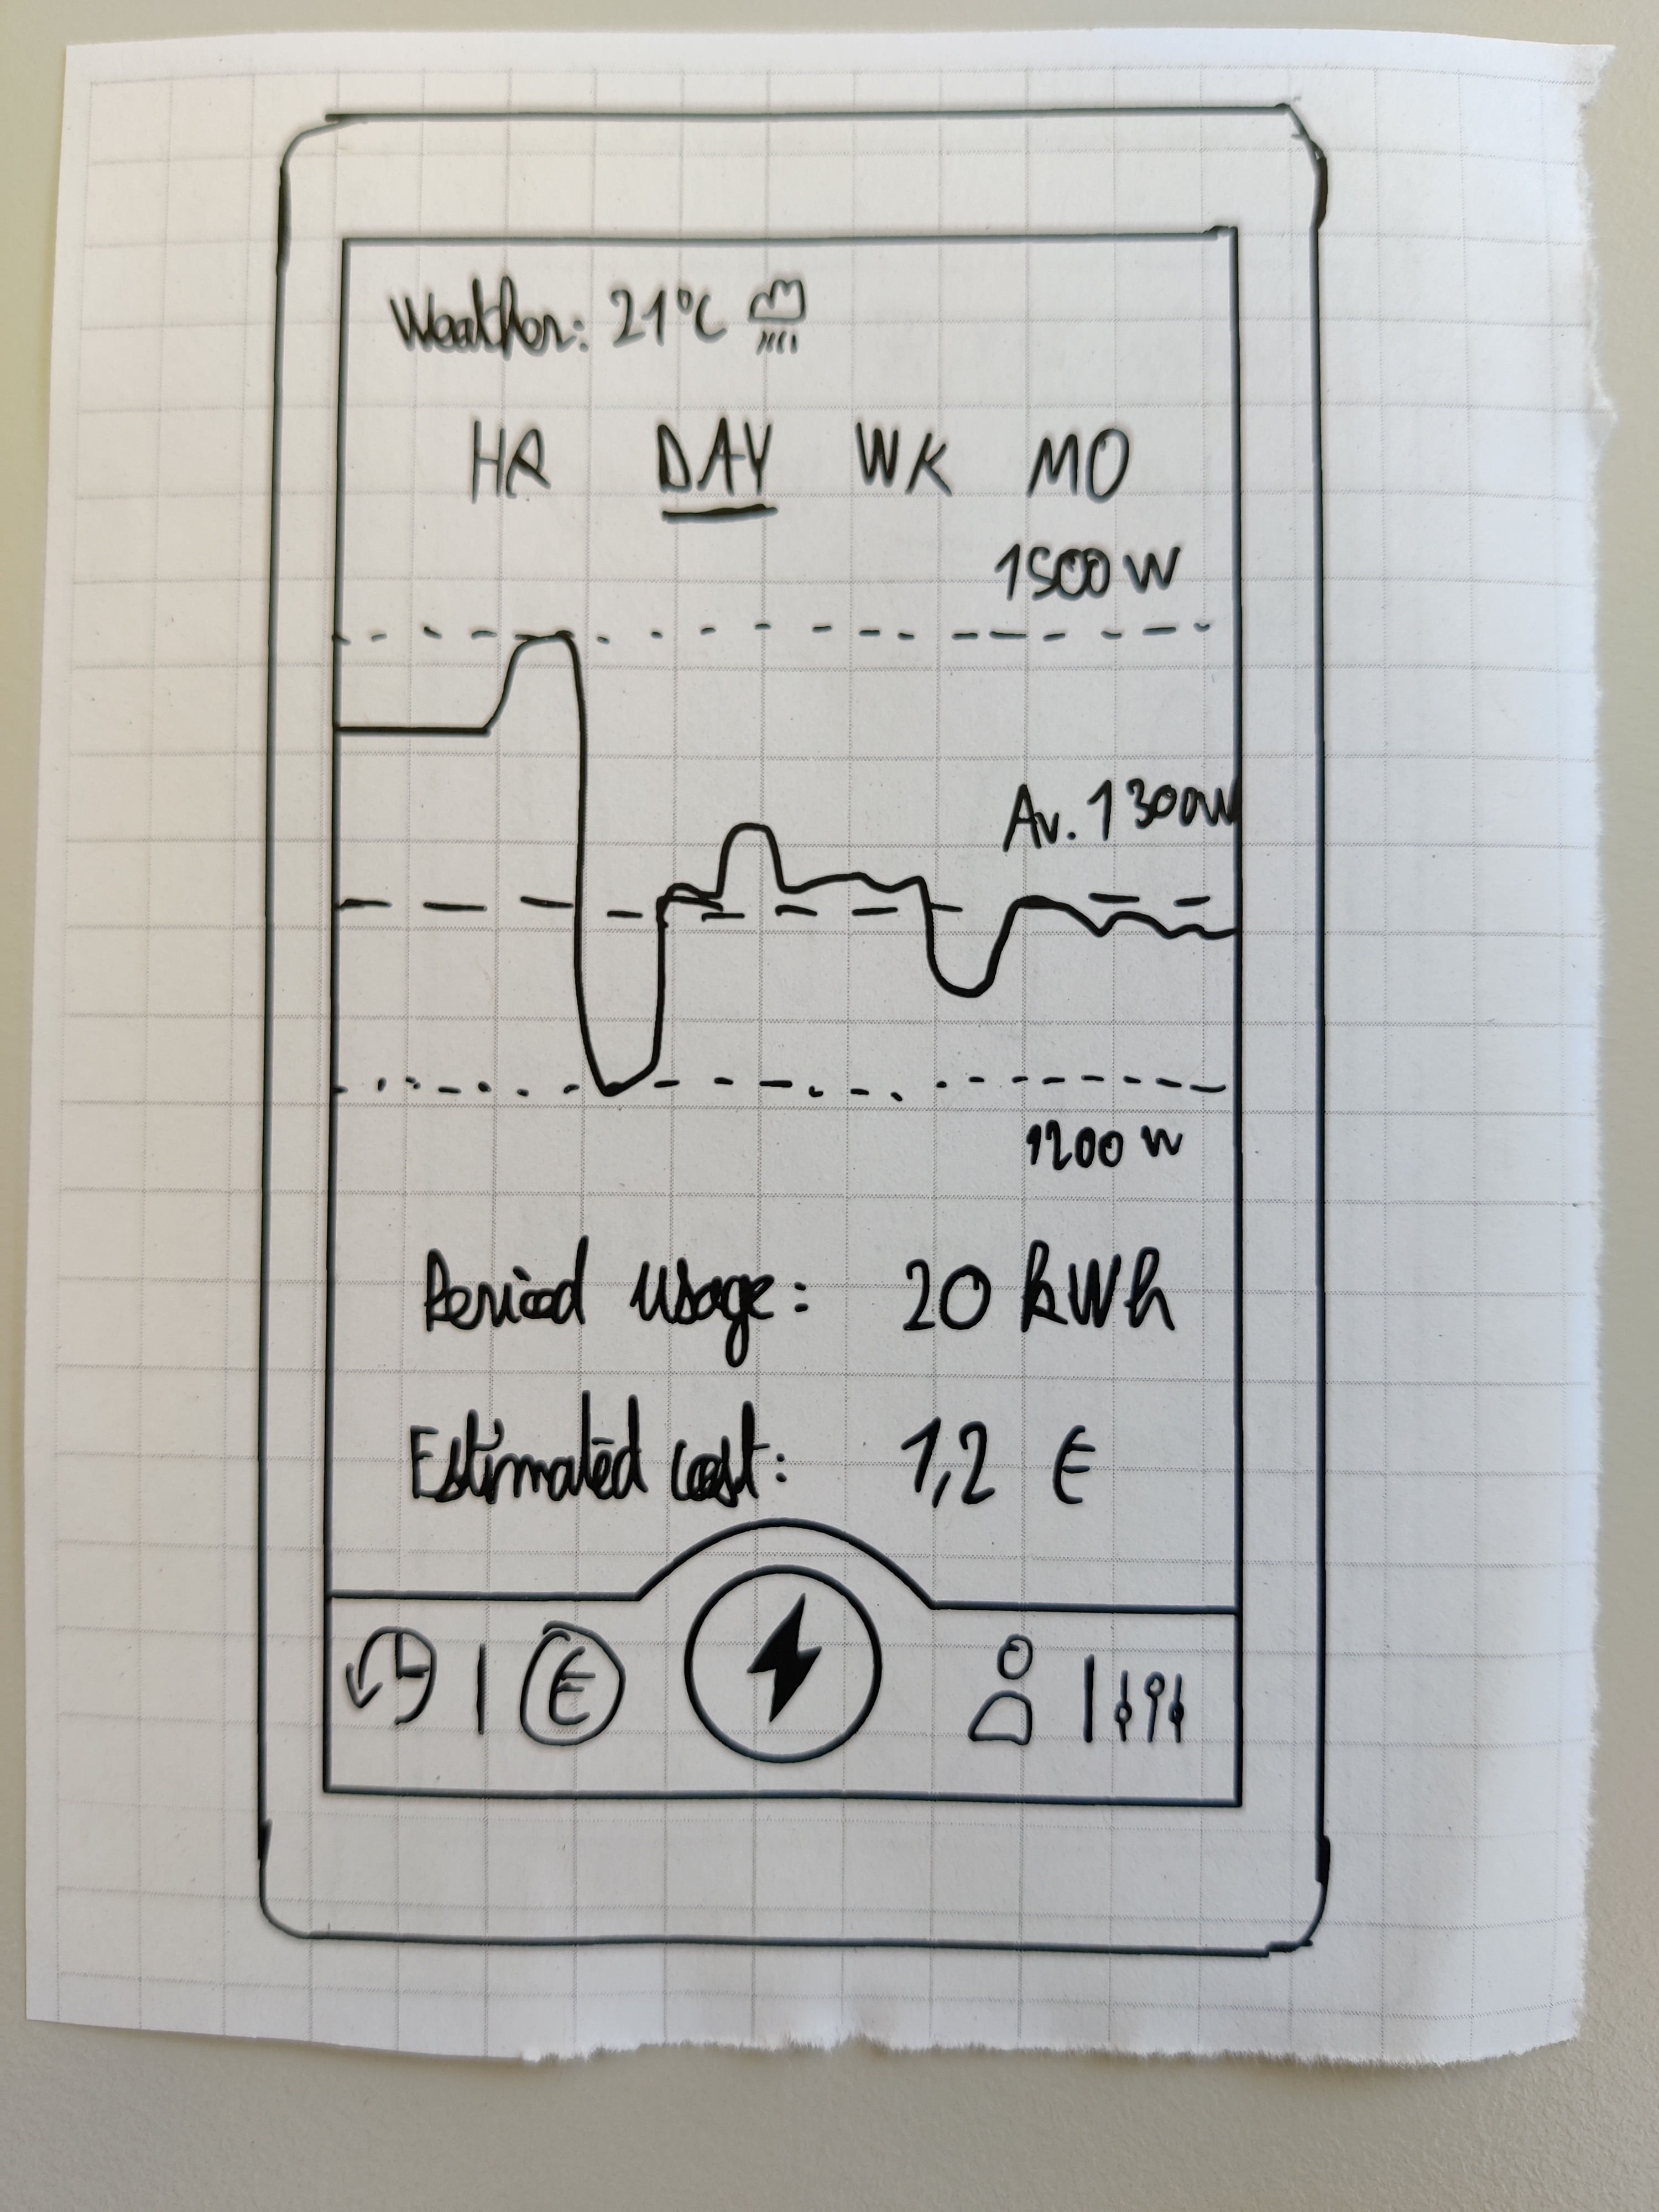 Weather: 21°C
HR DAY WK MO
1500 W
Av. 1300W
1200 W
Period Usage: 20 kWh
Estimated cost: 1,2 €
€